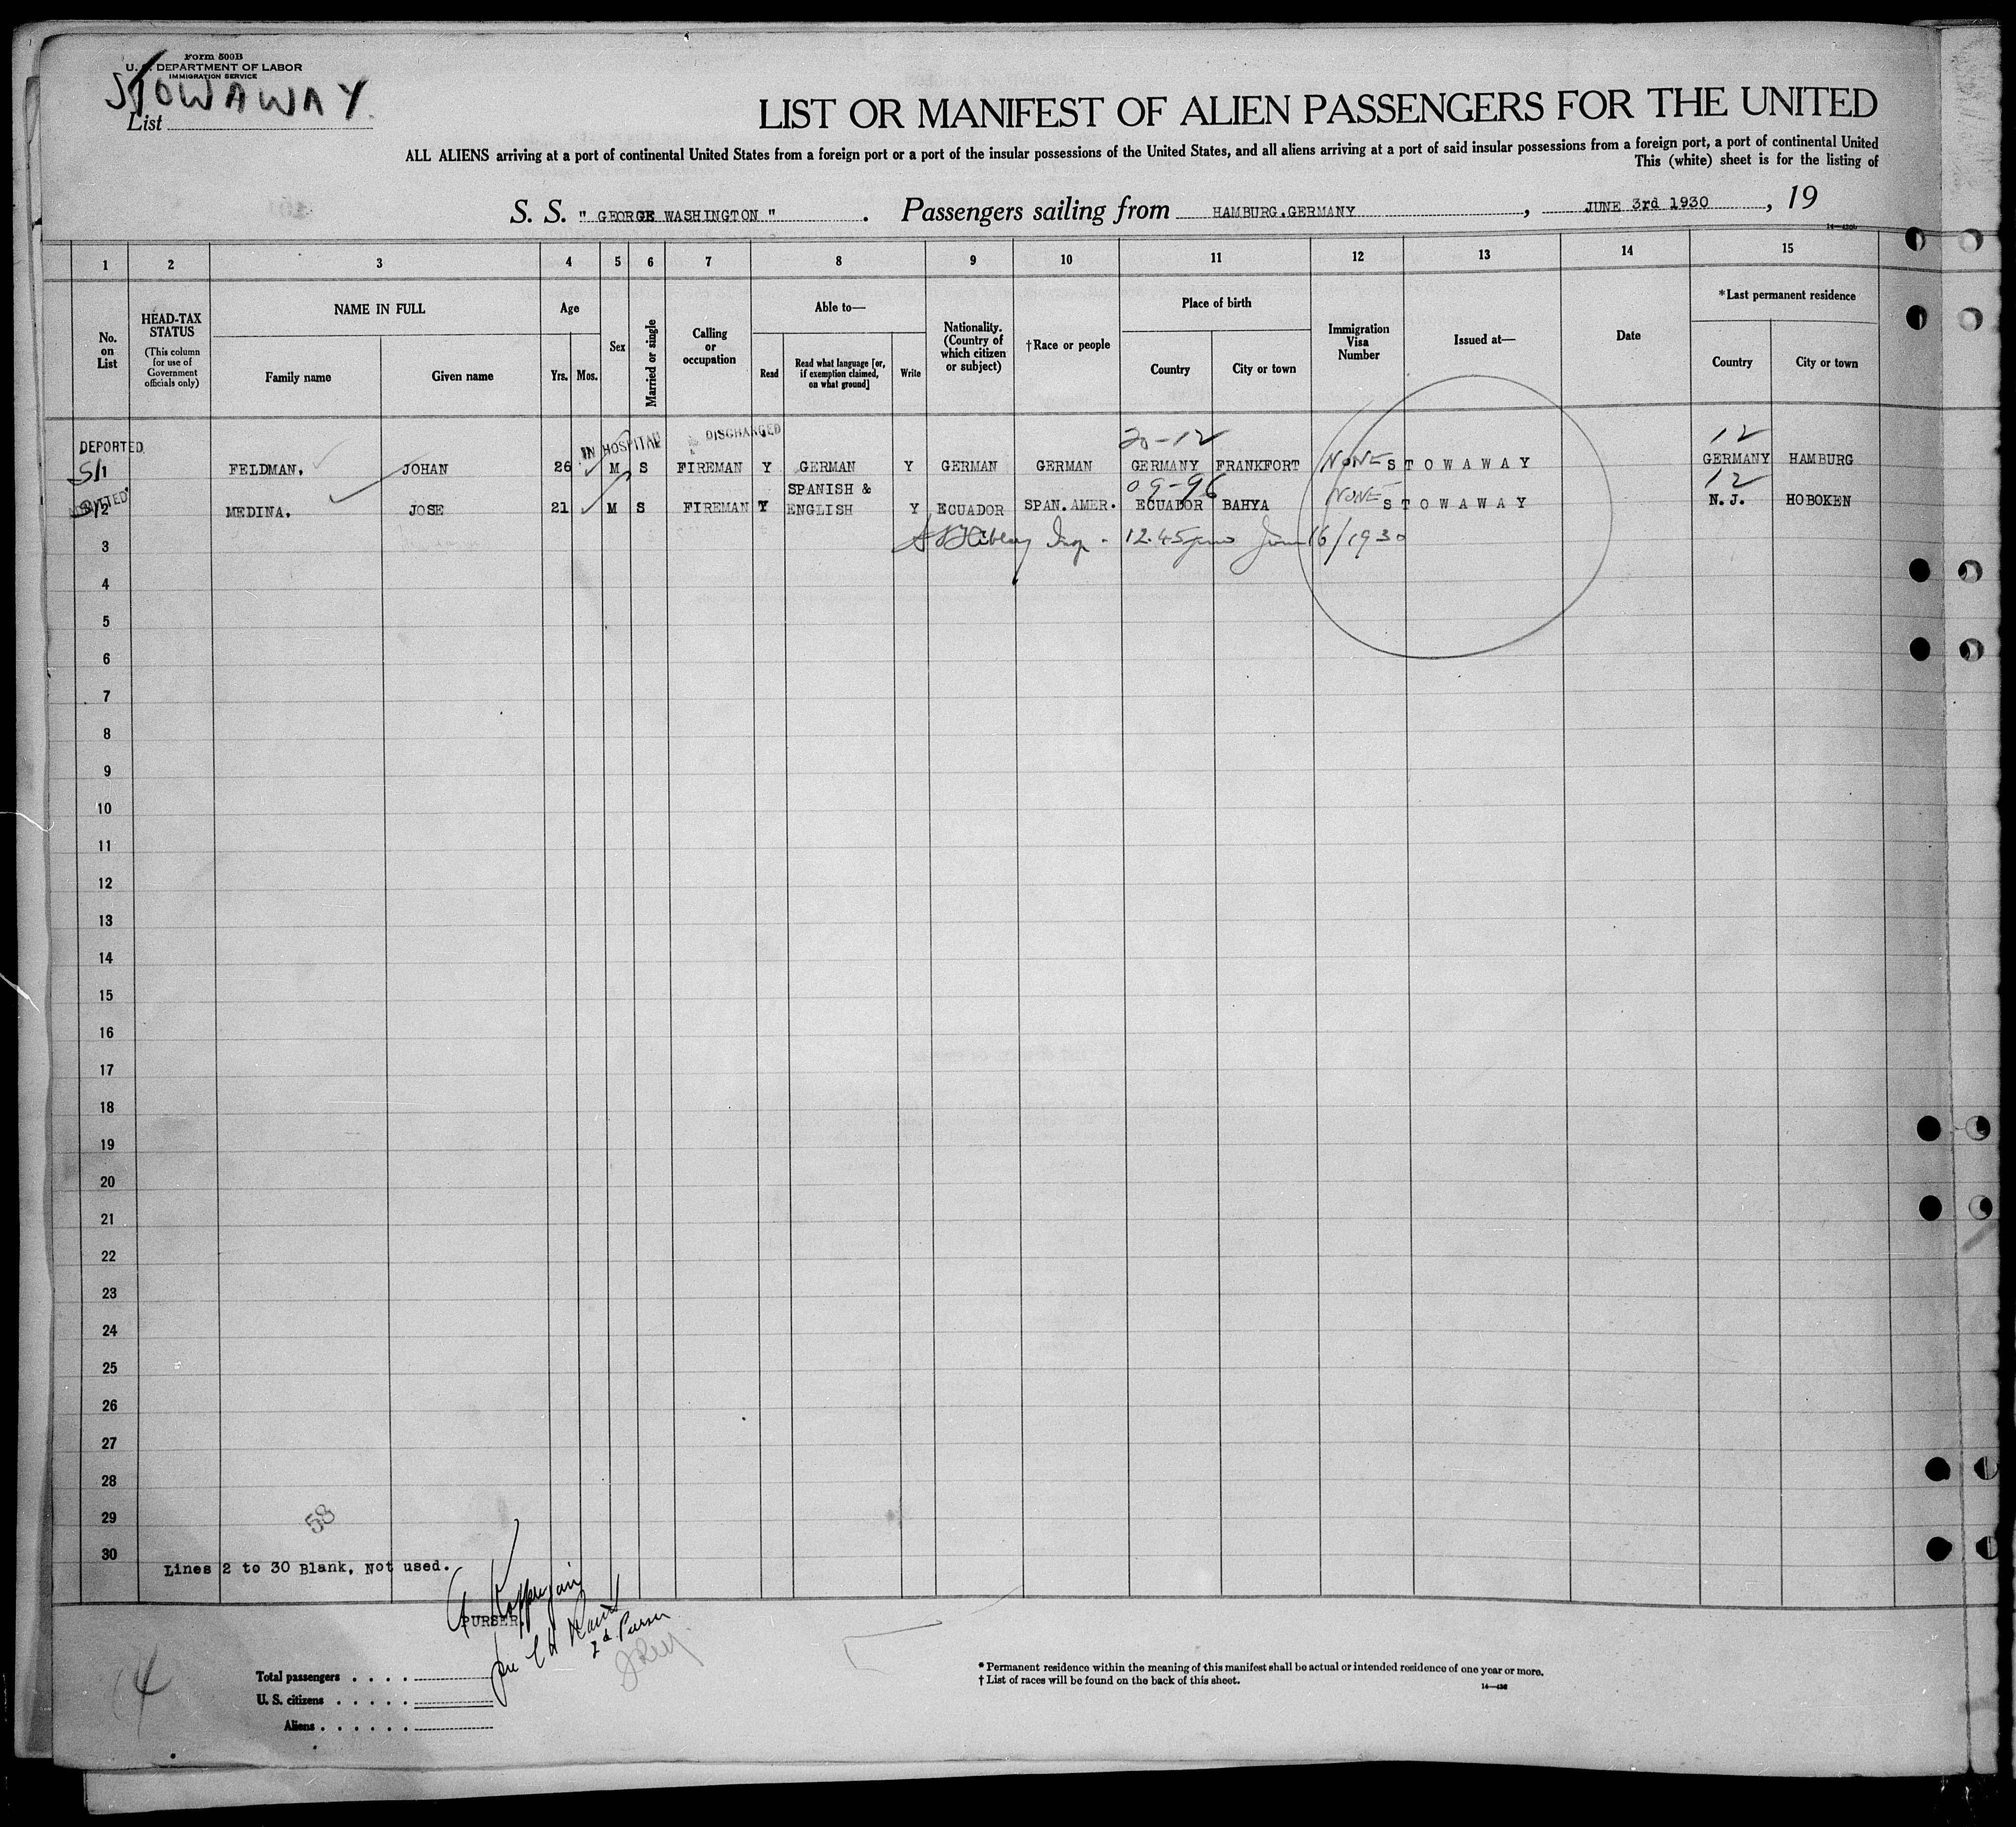 Form 500B
U. S. DEPARTMENT OF LABOR
IMMIGRATION SERVICE
STOWAWAY
List
LIST OR MANIFEST OF ALIEN PASSENGERS FOR THE UNITED
ALL ALIENS arriving at a port of continental United States from a foreign port or a port of the insular possessions of the United States, and all aliens arriving at a port of said insular possessions from a foreign port, a port of continental United
This (white) sheet is for the listing of
S. S. " GEORGE WASHINGTON ". Passengers sailing from HAMBURG.GERMANY, JUNE 3rd 1930, 19
1 2 3 4 5 6 7 8 9 10 11 12 13 14 15
No. on List
HEAD-TAX STATUS
(This column for use of Government officials only)
NAME IN FULL
Family name Given name
Age
Yrs. Mos.
Sex
Married or single
Calling or occupation
Able to—
Read
Read what language [or, if exemption claimed, on what ground]
Write
Nationality. (Country of which citizen or subject)
†Race or people
Place of birth
Country City or town
Immigration Visa Number
Issued at—
Date
*Last permanent residence
Country City or town
DEPORTED IN HOSPITAL DISCHARGED 20-12 12
S/1 FELDMAN. JOHAN 26 M S FIREMAN Y GERMAN Y GERMAN GERMAN GERMANY FRANKFORT NONE STOWAWAY GERMANY HAMBURG
ADMITTED SPANISH & 09-96 12
2 MEDINA. JOSE 21 M S FIREMAN Y ENGLISH Y ECUADOR SPAN.AMER. ECUADOR BAHYA NONE STOWAWAY N.J. HOBOKEN
3 Insp. 12.45 pm June 16/1930
4
5
6
7
8
9
10
11
12
13
14
15
16
17
18
19
20
21
22
23
24
25
26
27
28
29
58
30
Lines 2 to 30 Blank, Not used.
PURSER.
2d. Purser
14
Total passengers
U. S. citizens
Aliens
* Permanent residence within the meaning of this manifest shall be actual or intended residence of one year or more.
† List of races will be found on the back of this sheet.